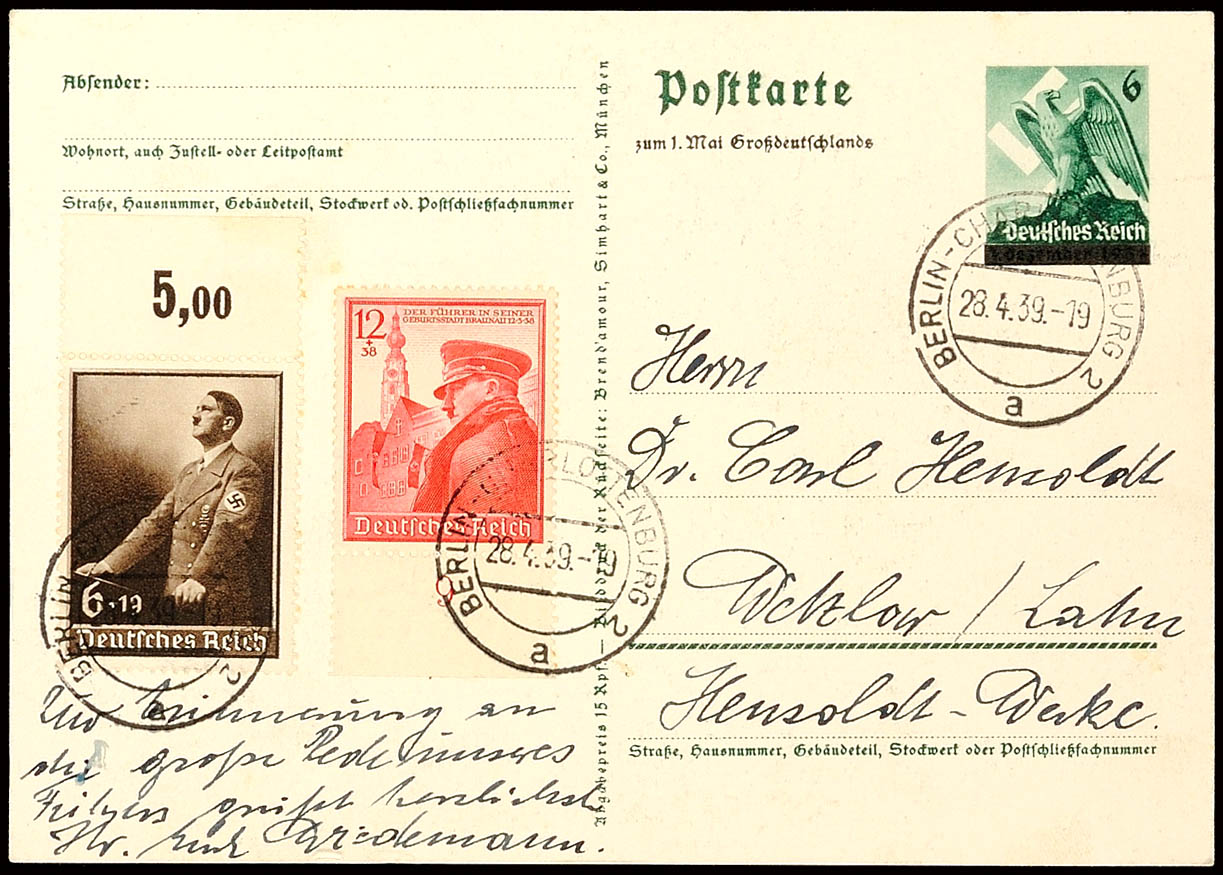 Absender:
Wohnort, auch Zustell- oder Leitpostamt
Straße, Hausnummer, Gebäudeteil, Stockwerk od. Postschließfachnummer
5,00
6+19
Deutsches Reich
12
+
38
DER FÜHRER IN SEINER
GEBURTSSTADT BRAUNAU 12·3·38
Deutsches Reich
9
BERLIN 2
a
BERLIN-CHARLOTTENBURG 2
28.4.39.-19
a
Zur Erinnerung an
die große Rede unseres
Führers grüßt herzlichst
Ihr Friedemann.
Angabepreis 15 Rpf. — Bildband der Rückseite: Brend'amour, Simhart & Co., München
Postkarte
zum 1. Mai Großdeutschlands
6
Deutsches Reich
BERLIN-CHARLOTTENBURG 2
28.4.39.-19
a
Herrn
Dr. Carl Hensoldt
Wetzlar / Lahn
Hensoldt-Werke.
Straße, Hausnummer, Gebäudeteil, Stockwerk oder Postschließfachnummer